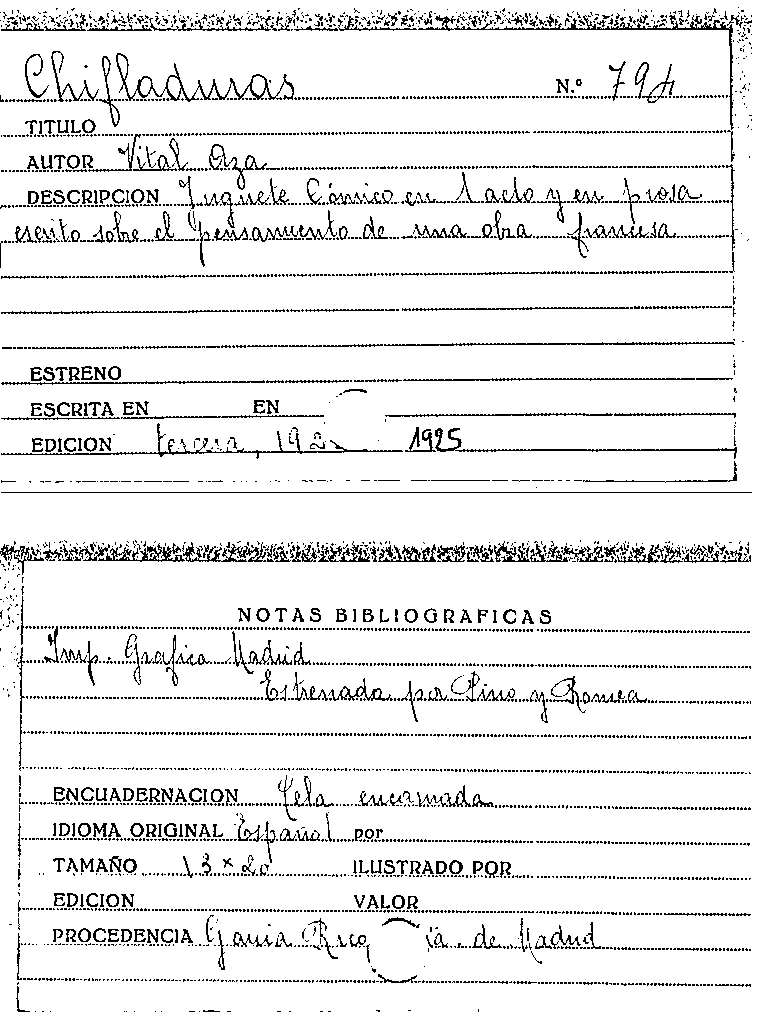 Chifladuras N.º 794
TITULO
AUTOR Vital Aza
DESCRIPCION Juguete Cómico en 1 acto y en prosa
escrito sobre el pensamiento de una obra francesa
ESTRENO
ESCRITA EN EN
EDICION tercera, 192 1925
NOTAS BIBLIOGRAFICAS
Imp. Grafica Madrid
Estrenada por Pino y Romea
ENCUADERNACION Tela encarnada
IDIOMA ORIGINAL Español por
TAMAÑO 13 x 20 ILUSTRADO POR
EDICION VALOR
PROCEDENCIA de Madrid